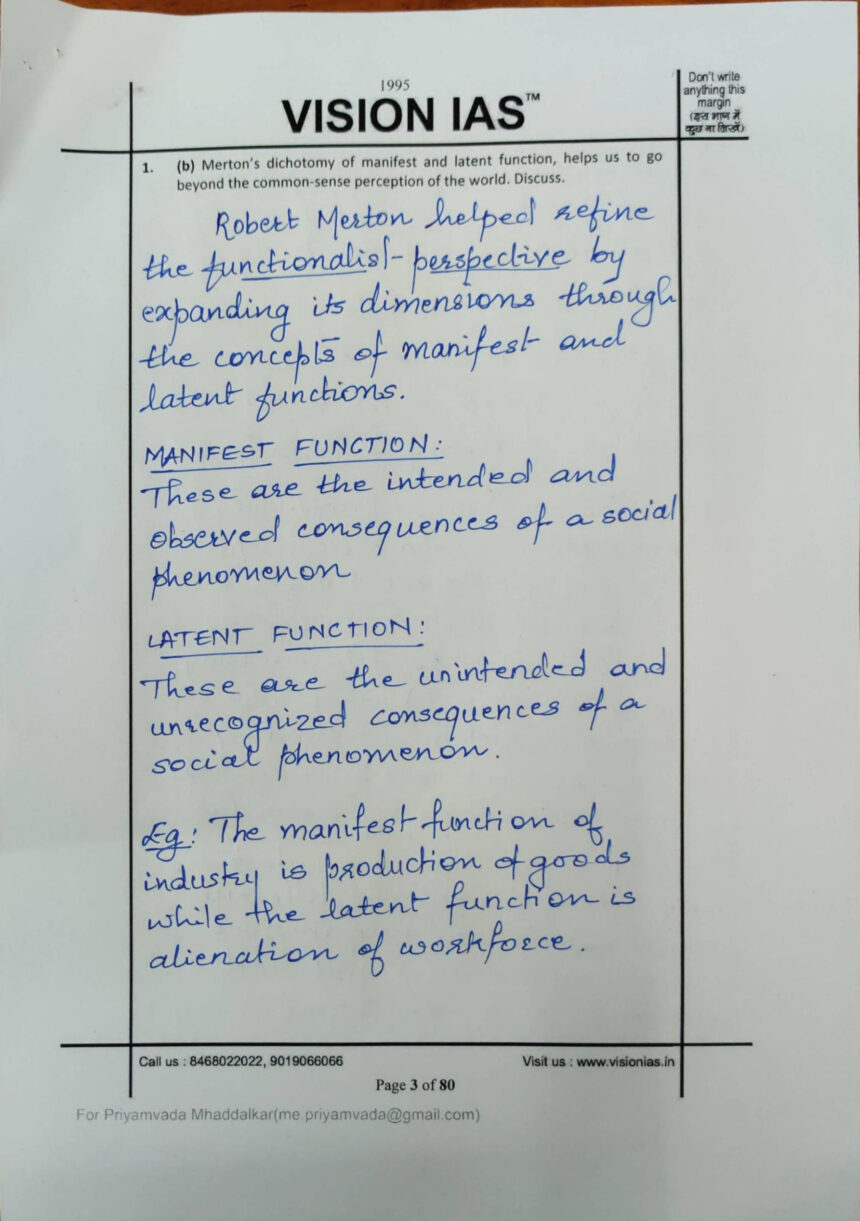 1995
VISION IAS™
Don't write
anything this
margin
(इस भाग में
कुछ ना लिखें)
1. (b) Merton's dichotomy of manifest and latent function, helps us to go
beyond the common-sense perception of the world. Discuss.
Robert Merton helped refine
the functionalist perspective by
expanding its dimensions through
the concepts of manifest and
latent functions.
MANIFEST FUNCTION:
These are the intended and
observed consequences of a social
phenomenon
LATENT FUNCTION:
These are the unintended and
unrecognized consequences of a
social phenomenon.
Eg: The manifest function of
industry is production of goods
while the latent function is
alienation of workforce.
Call us : 8468022022, 9019066066 Visit us : www.visionias.in
Page 3 of 80
For Priyamvada Mhaddalkar(me.priyamvada@gmail.com)